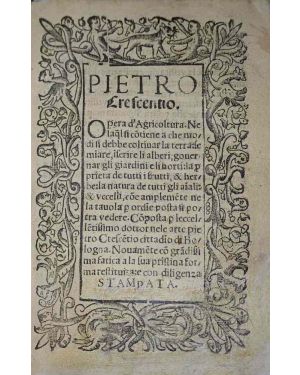 PIETRO
Crescentio.
Opera d'Agricoltura. Ne
laq̃l si cōtiene a che mo
di si debbe coltiuar la terra, se
miare, iserire li alberi, gouer
nar gli giardini e li horti: la p
prieta de tutti i frutti, & her
be: la natura de tutti gli aīali:
& vccelli, cōe amplemēte ne
la tauola p ordie posta si po
tra vedere. Cōposta p lo eccel
lētissimo dottor nele arte pie
tro Crescētio cittadio di Bo
logna. Nouamēte cō grādissi
ma fatica a la sua pristina for
ma restituita: e con diligenza
STAMPATA.